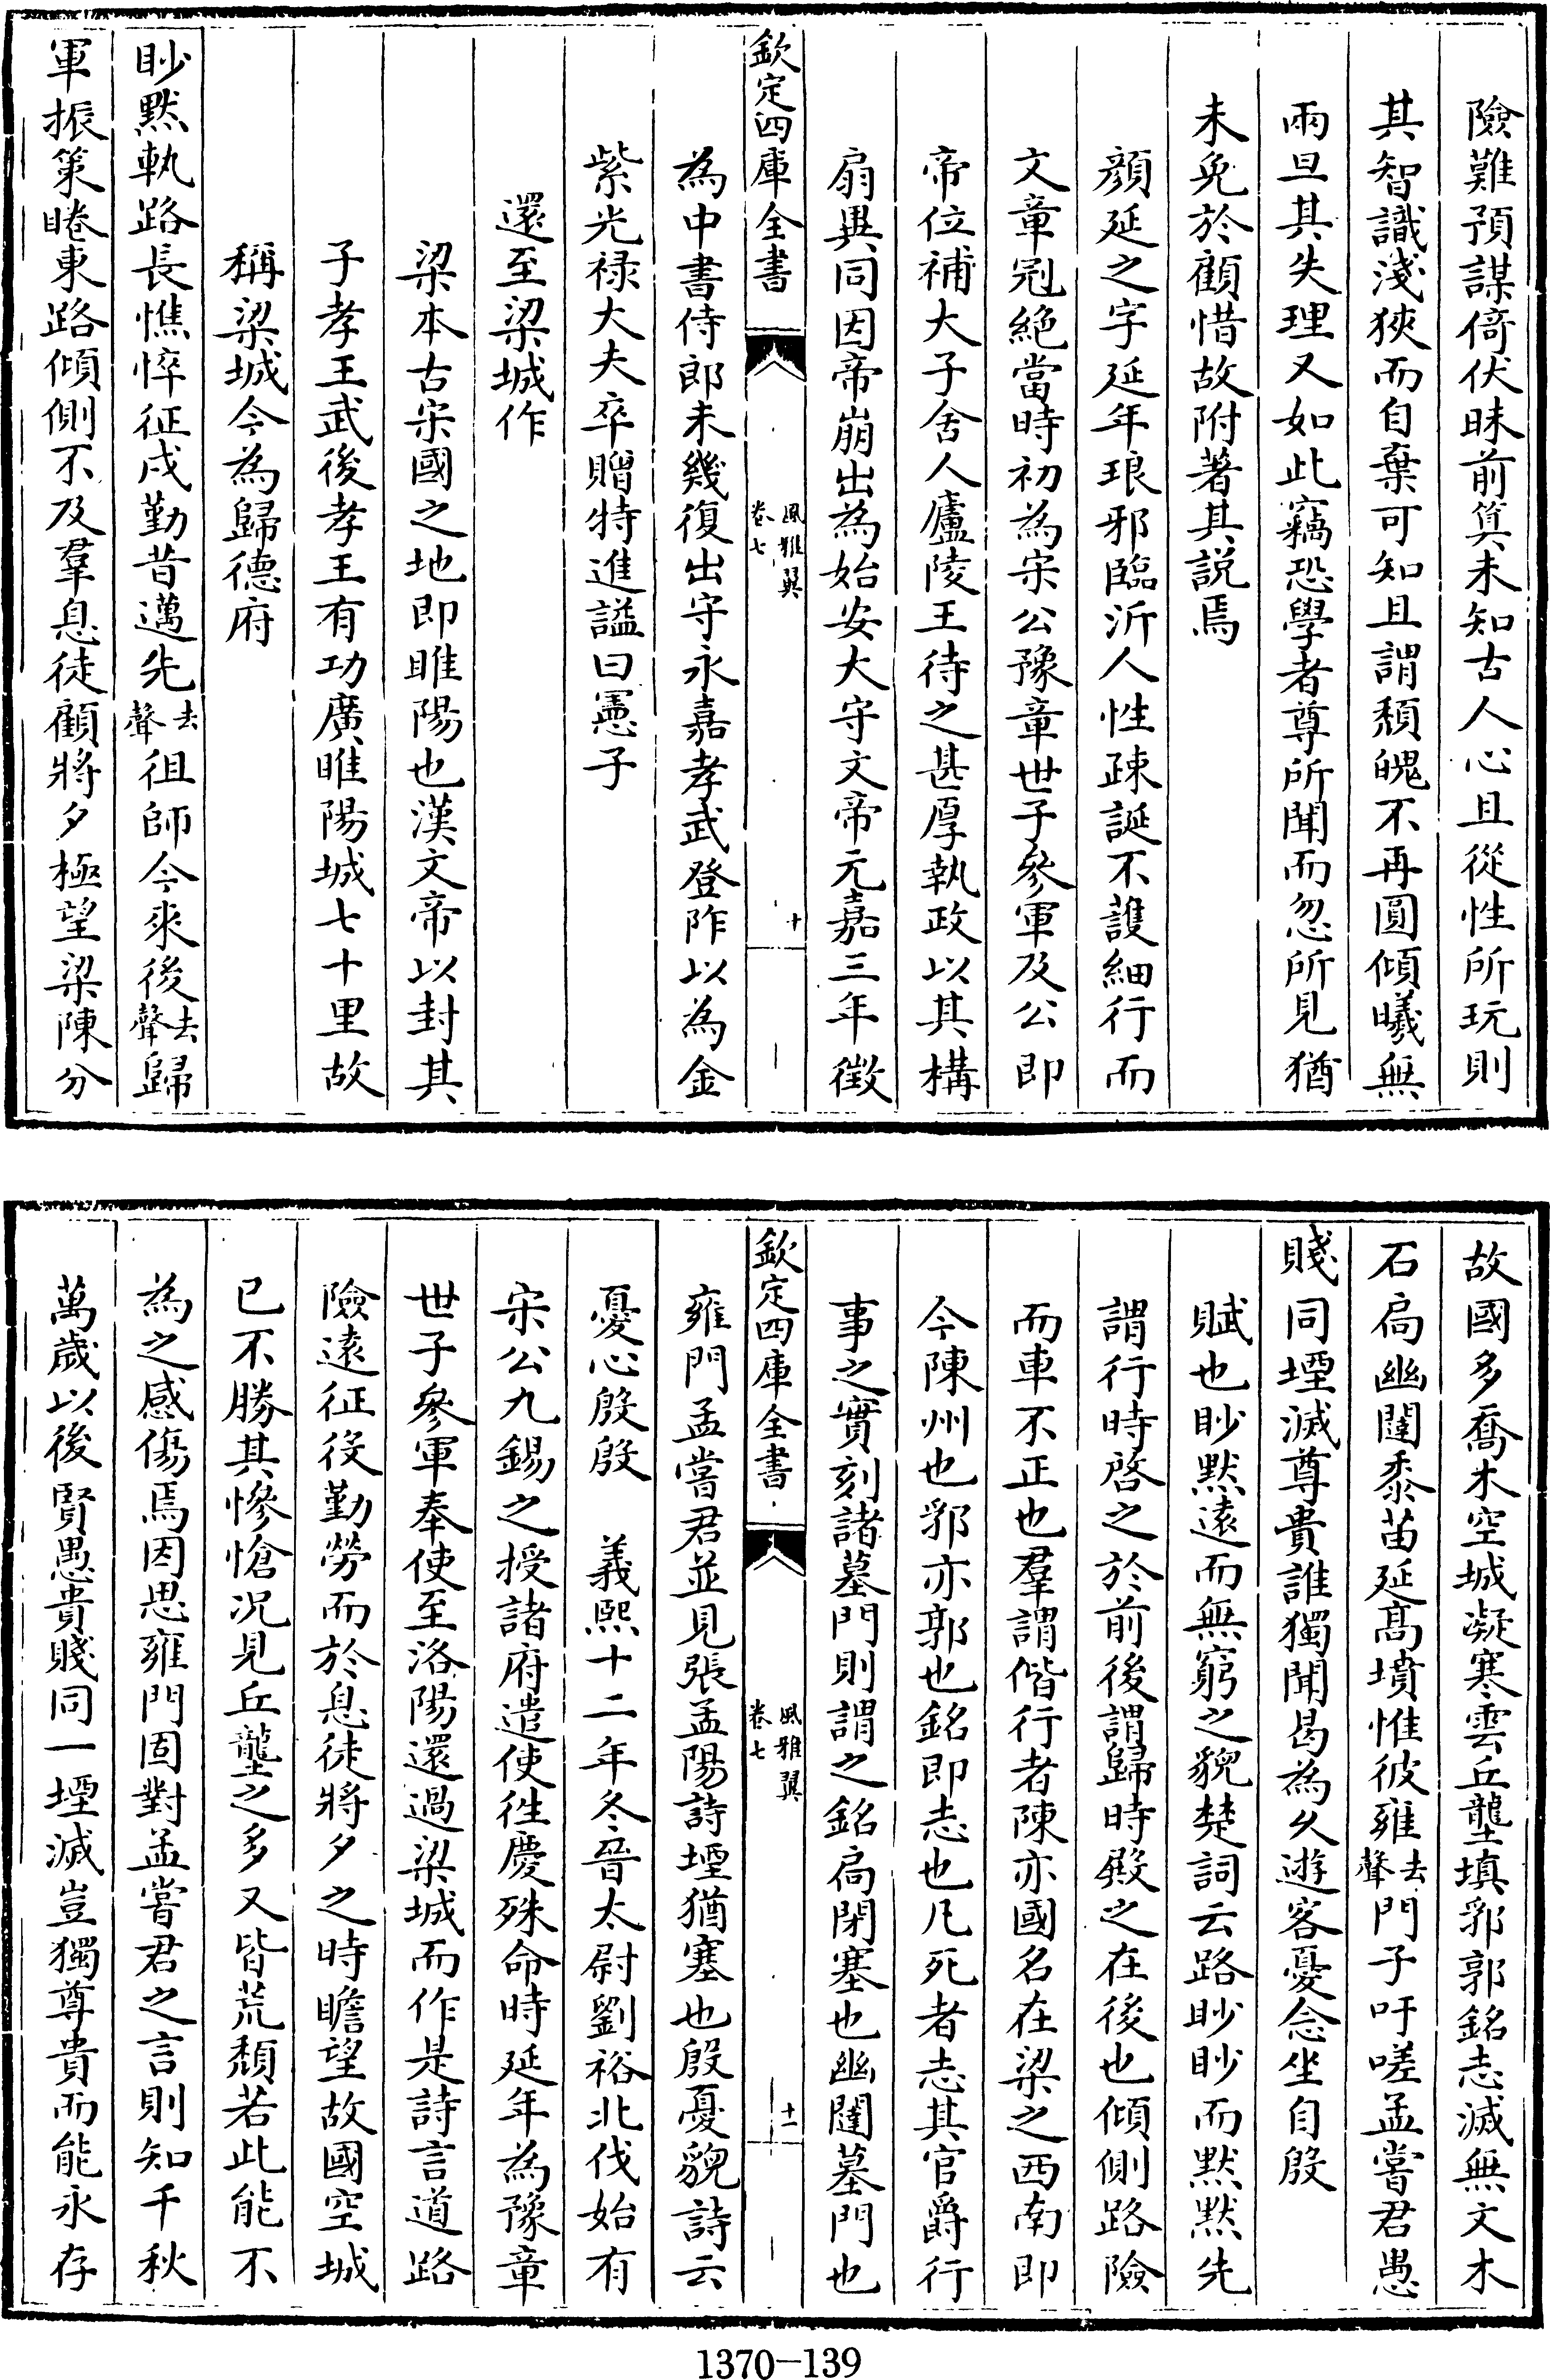 險難預謀倚伏昧前筭未知古人心且從性所玩則
其智識淺狹而自棄可知且謂頽魄不再圓傾曦無
兩旦其失理又如此竊恐學者尊所聞而忽所見猶
未免於顧惜故附著其説焉
顔延之字延年琅邪臨沂人性疎誕不護細行而
文章冠絶當時初為宋公豫章世子參軍及公即
帝位補大子舍人廬陵王待之甚厚執政以其構
扇異同因帝崩出為始安大守文帝元嘉三年徴
欽定四庫全書
風雅翼
卷七
十
為中書侍郎未幾復出守永嘉孝武登阼以為金
紫光禄大夫卒贈特進謚曰憲子
還至梁城作
梁本古宋國之地即睢陽也漢文帝以封其
子孝王武後孝王有功廣睢陽城七十里故
稱梁城今為歸德府
眇黙軌路長憔悴征戍勤昔邁先去聲徂師今來後去聲歸
軍振策睠東路傾側不及羣息徒顧將夕極望梁陳分
故國多喬木空城凝寒雲丘壟填郛郭銘志滅無文木
石扃幽闥黍苗延髙墳惟彼雍去聲門子吁嗟孟嘗君愚
賤同堙滅尊貴誰獨聞曷為乆遊客憂念坐自殷
賦也眇黙逺而無窮之貌楚詞云路眇眇而黙黙先
謂行時啓之於前後謂歸時殿之在後也傾側路險
而車不正也羣謂偕行者陳亦國名在梁之西南即
今陳州也郛亦郭也銘即志也凡死者志其官爵行
事之實刻諸墓門則謂之銘扃閉塞也幽闥墓門也
欽定四庫全書
風雅翼
卷七
十一
雍門孟嘗君並見張孟陽詩堙猶塞也殷憂貌詩云
憂心殷殷　義熙十二年冬晉太尉劉裕北伐始有
宋公九錫之授諸府遣使徃慶殊命時延年為豫章
世子參軍奉使至洛陽還過梁城而作是詩言道路
險逺征役勤勞而於息徒將夕之時瞻望故國空城
已不勝其慘愴况見丘壟之多又皆荒頽若此能不
為之感傷焉因思雍門固對孟嘗君之言則知千秋
萬歲以後賢愚貴賤同一堙滅豈獨尊貴而能永存
1370-139